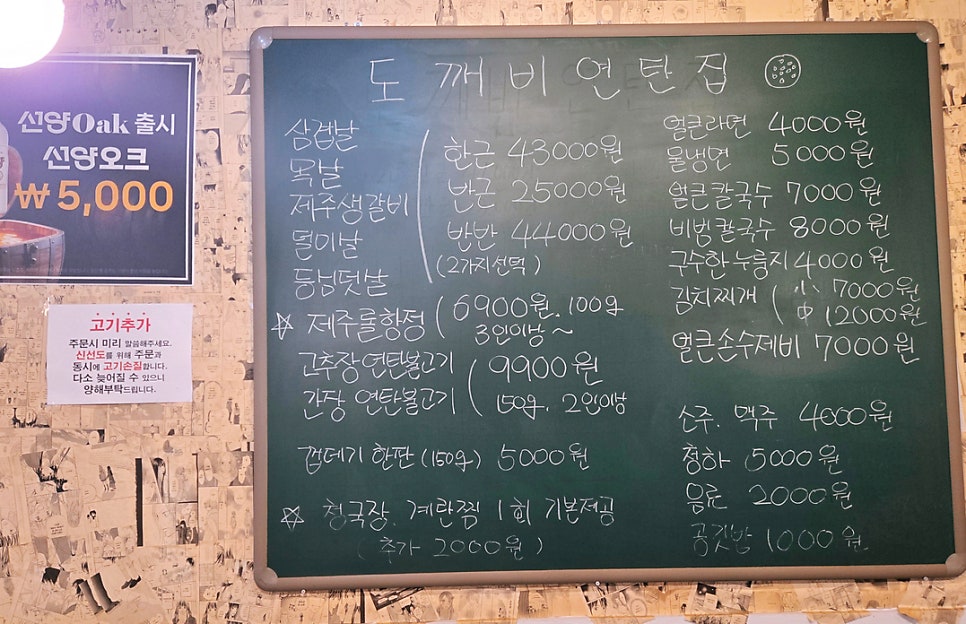 선양Oak 출시
선양오크
₩5,000
고기추가
주문시 미리 말씀해주세요.
신선도를 위해 주문과
동시에 고기손질합니다.
다소 늦어질 수 있으니
양해부탁드립니다.
도깨비연탄집
삼겹날
목날
제주생갈비
덜미날
등심덧살
한근 43000원
반근 25000원
반반 44000원
(2가지선택)
☆ 제주돌항정 6900원. 100g
3인이상~
고추장연탄불고기
간장 연탄불고기
9900원
150g. 2인이상
껍데기 한판 (150g) 5000원
☆ 청국장. 계란찜 1회 기본제공
(추가 2000원)
얼큰라면 4000원
물냉면 5000원
얼큰칼국수 7000원
비빔칼국수 8000원
구수한누룽지 4000원
김치찌개 小 7000원
中 12000원
얼큰손수제비 7000원
소주. 맥주 4000원
청하 5000원
음료 2000원
공깃밥 1000원